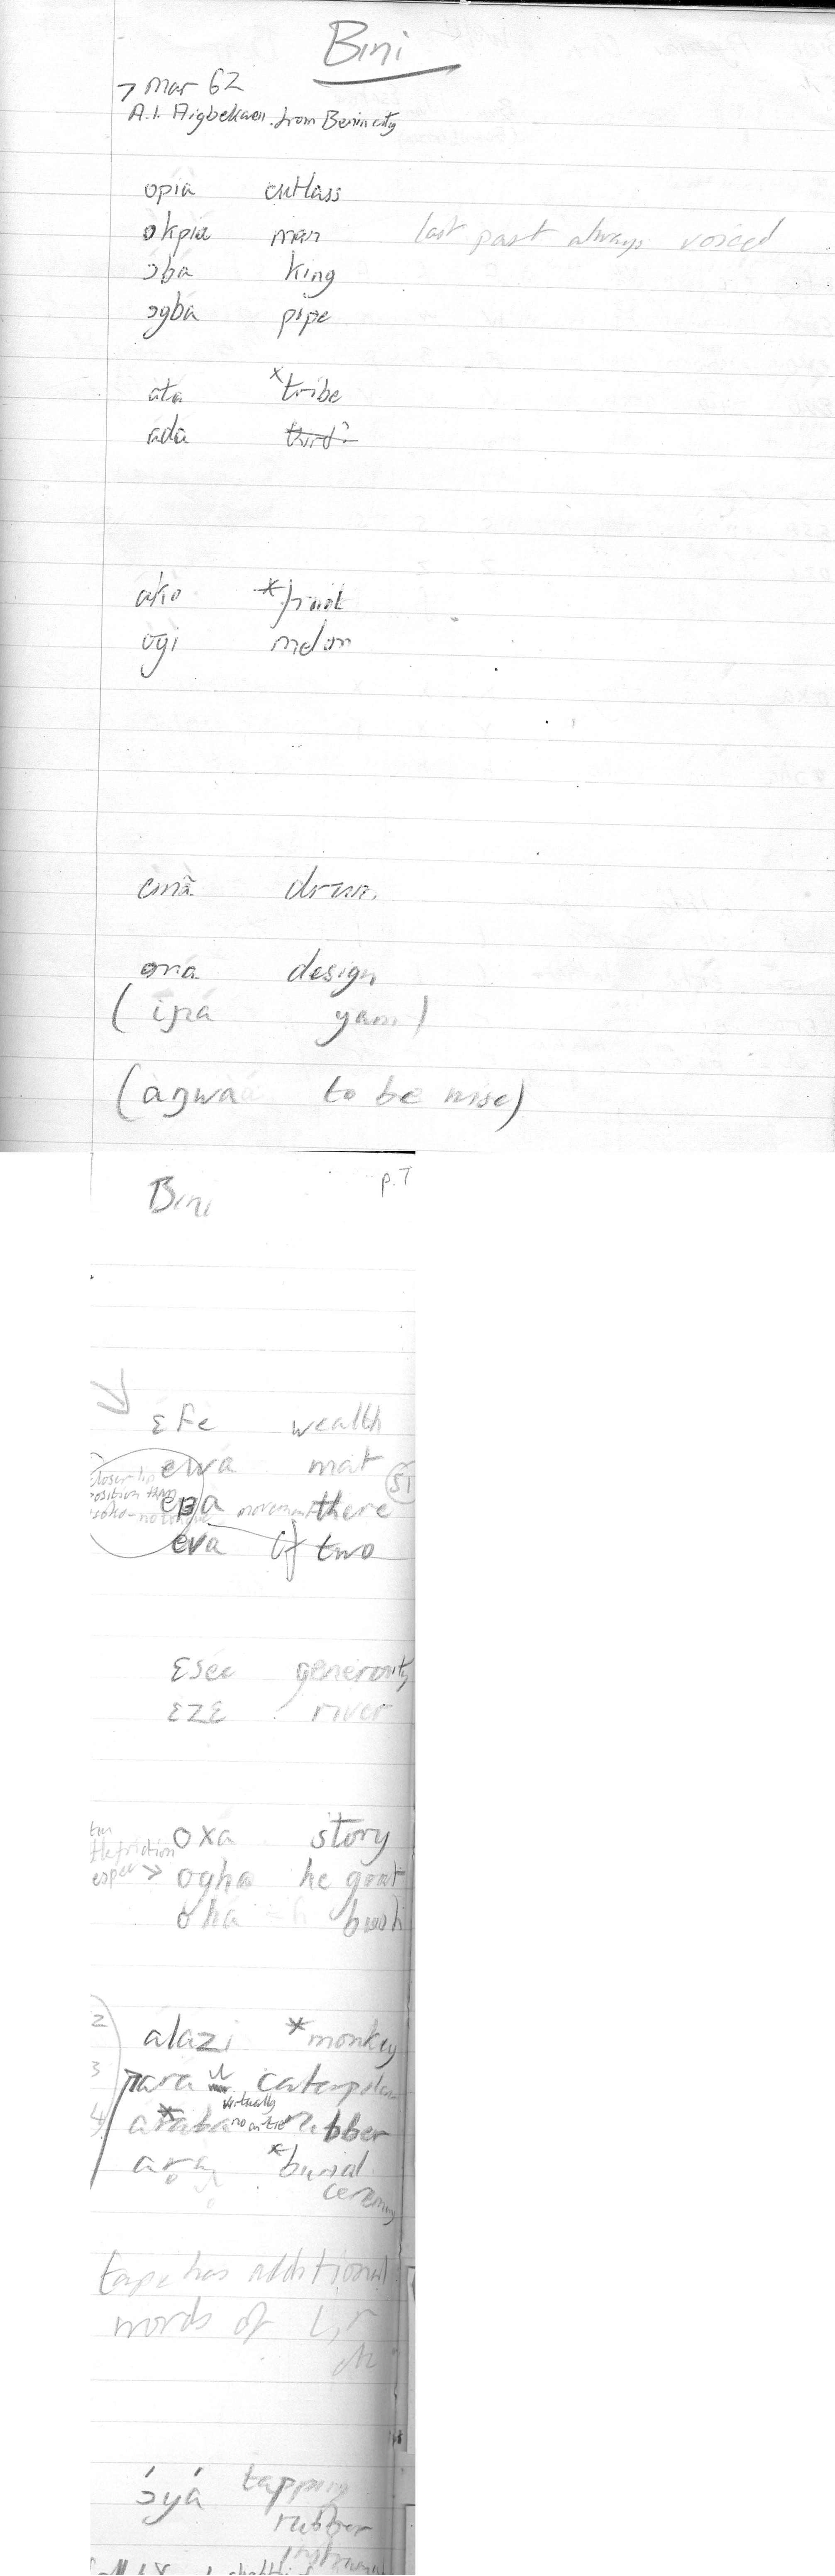 Bini
7 Mar 62
A.I. Aigbekaen. from Benin city
opia cutlass
okpia man last part always voiced
ɔba king
ɔgba pipe
ata *tribe
ada third?
ako *fruit
ogi melon
ema drum.
ona design
(iɲa yam)
(aŋwaa to be wise)
Bini p.7
ɛfe wealth
ewa mat
closer lip position than
eβa there 51
no tongue movement
eva two
ɛsee generosity
ɛzɛ river
oxa story
friction
ogha he goat
oha bush
2 alazi *monkey
3 para caterpillar
virtually
4 araba rubber
ar̥a *burial
ceremony
tape has additional
words of l, r
ɔya tapping
rubber
instrument